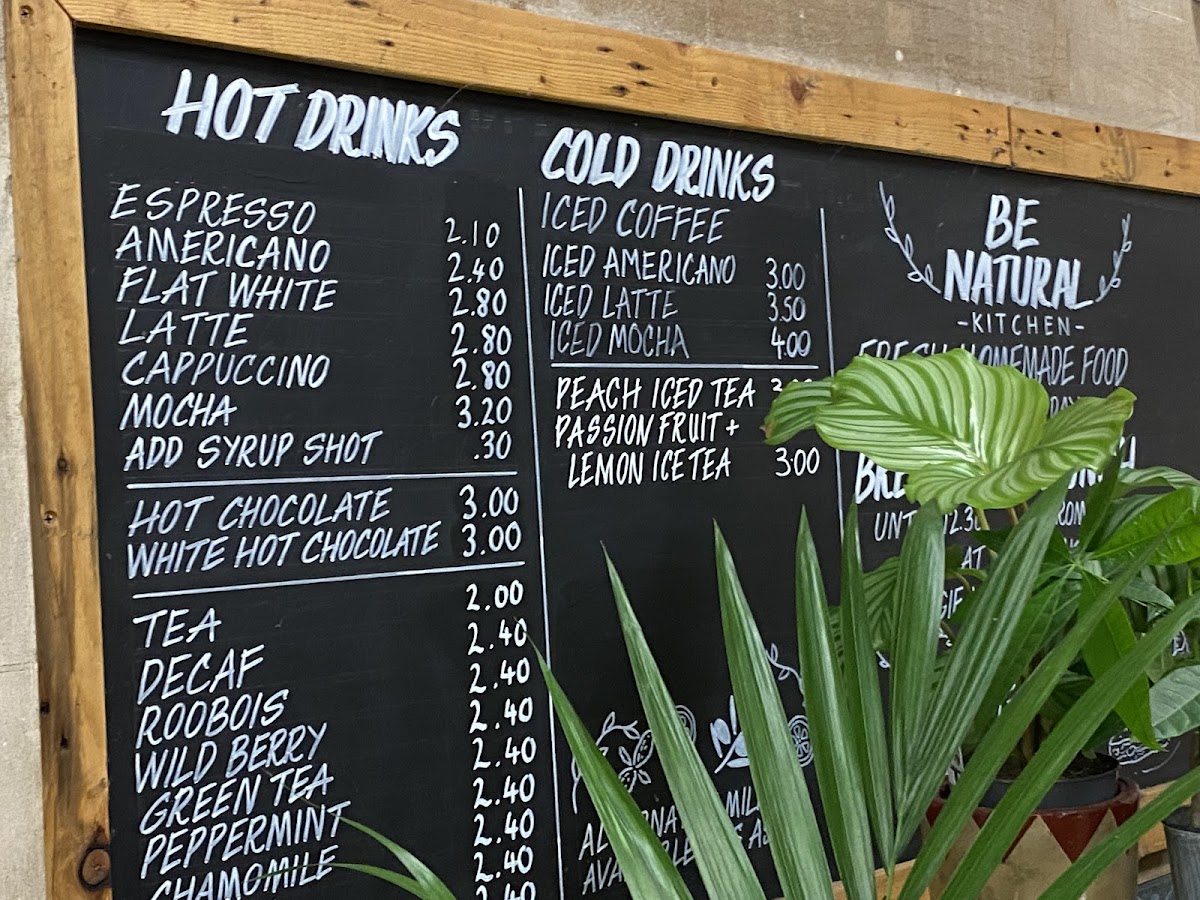 HOT DRINKS
ESPRESSO 2.10
AMERICANO 2.40
FLAT WHITE 2.80
LATTE 2.80
CAPPUCCINO 2.80
MOCHA 3.20
ADD SYRUP SHOT .30
HOT CHOCOLATE 3.00
WHITE HOT CHOCOLATE 3.00
TEA 2.00
DECAF 2.40
ROOBOIS 2.40
WILD BERRY 2.40
GREEN TEA 2.40
PEPPERMINT 2.40
CHAMOMILE 2.40
2.40
2.40
COLD DRINKS
ICED COFFEE
ICED AMERICANO 3.00
ICED LATTE 3.50
ICED MOCHA 4.00
PEACH ICED TEA
PASSION FRUIT +
LEMON ICE TEA 3.00
BE
NATURAL
-KITCHEN-
FRESH HOMEMADE FOOD